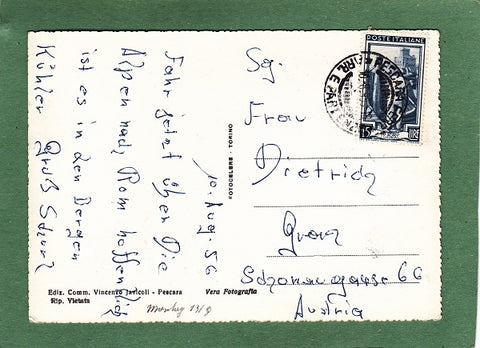 10. Aug. 56
Fahr jetzt über die
Alpen nach Rom hoffentlich
ist es in den Bergen
Kühler Gruß
Edis. Comm. Vincenzo Jaricoli - Pescara
Rip. Vietata
Vera Fotografia
FOTOCELERE - TORINO
POSTE ITALIANE
PESCARA
ARR. E PAR
LIRE
Sg.
Frau
Dietrich
Graz
Schönaugasse 66
Austria
13/9